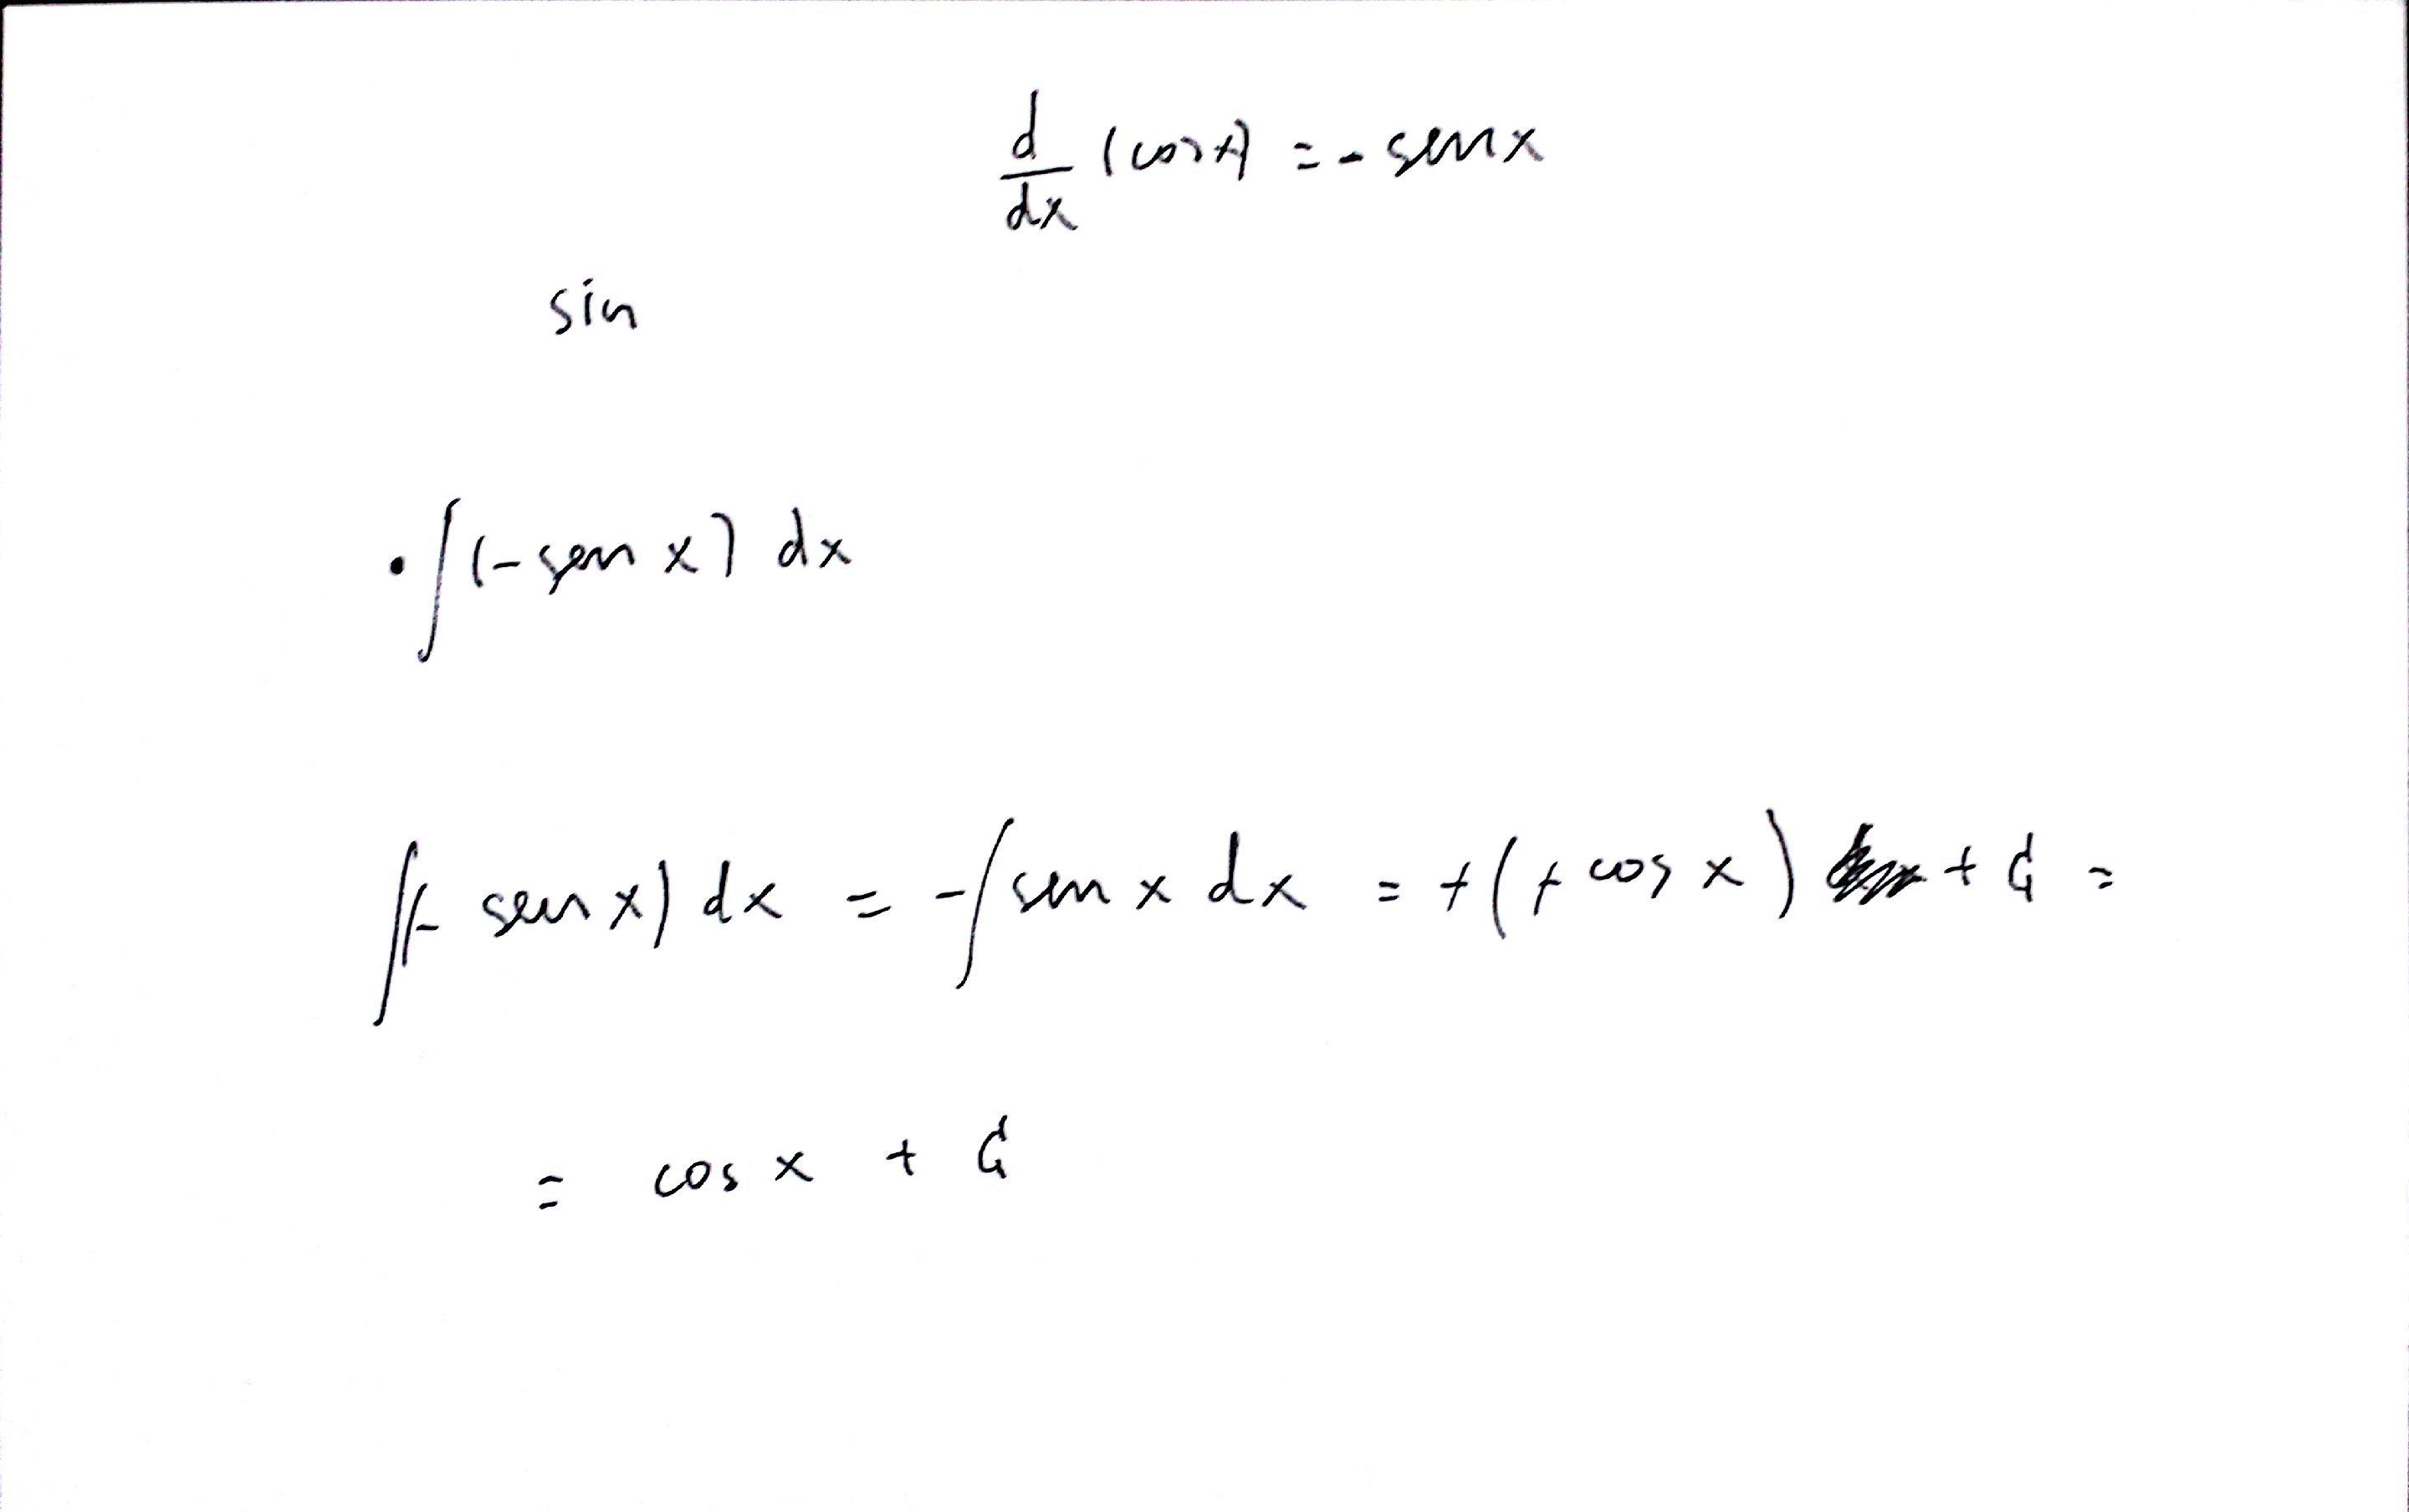 d/dx (cos x) = - sen x
sin
• ∫(- sen x) dx
∫(- sen x) dx = - ∫ sen x dx = + (+ cos x) + C =
= cos x + C